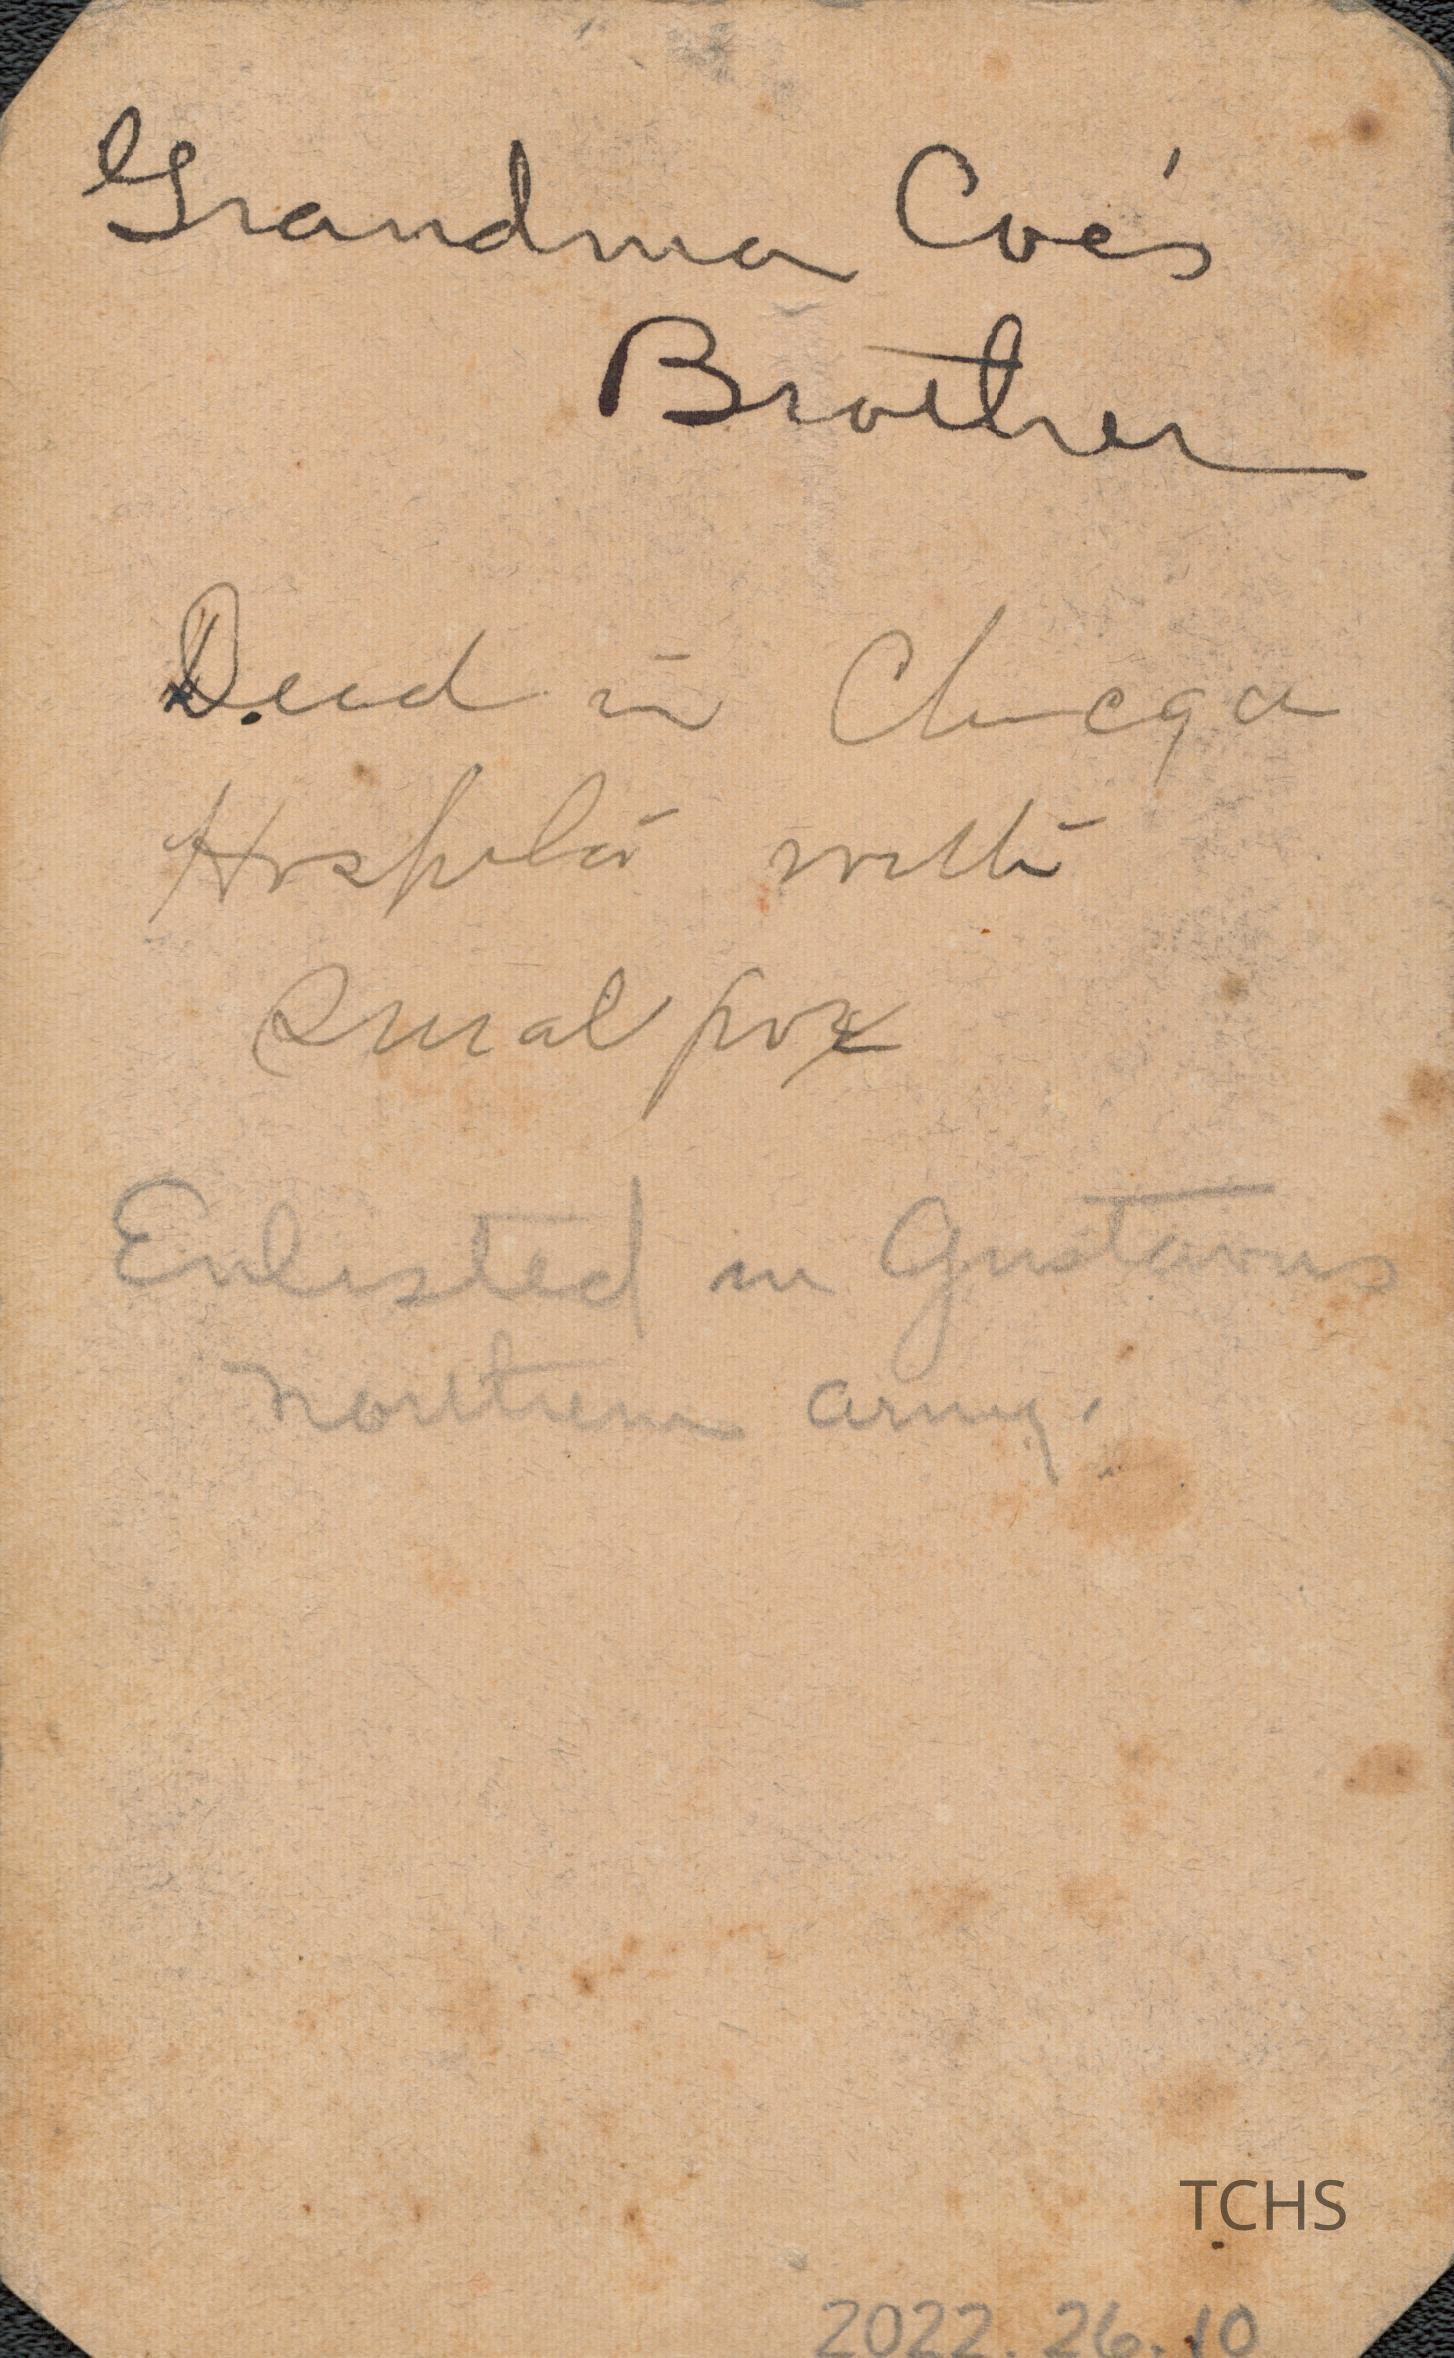 Grandma Coe's
Brother
Dead in Chicago
Hospital with
Small pox
Enlisted in Gustavus
northern army.
TCHS
2022.26.10